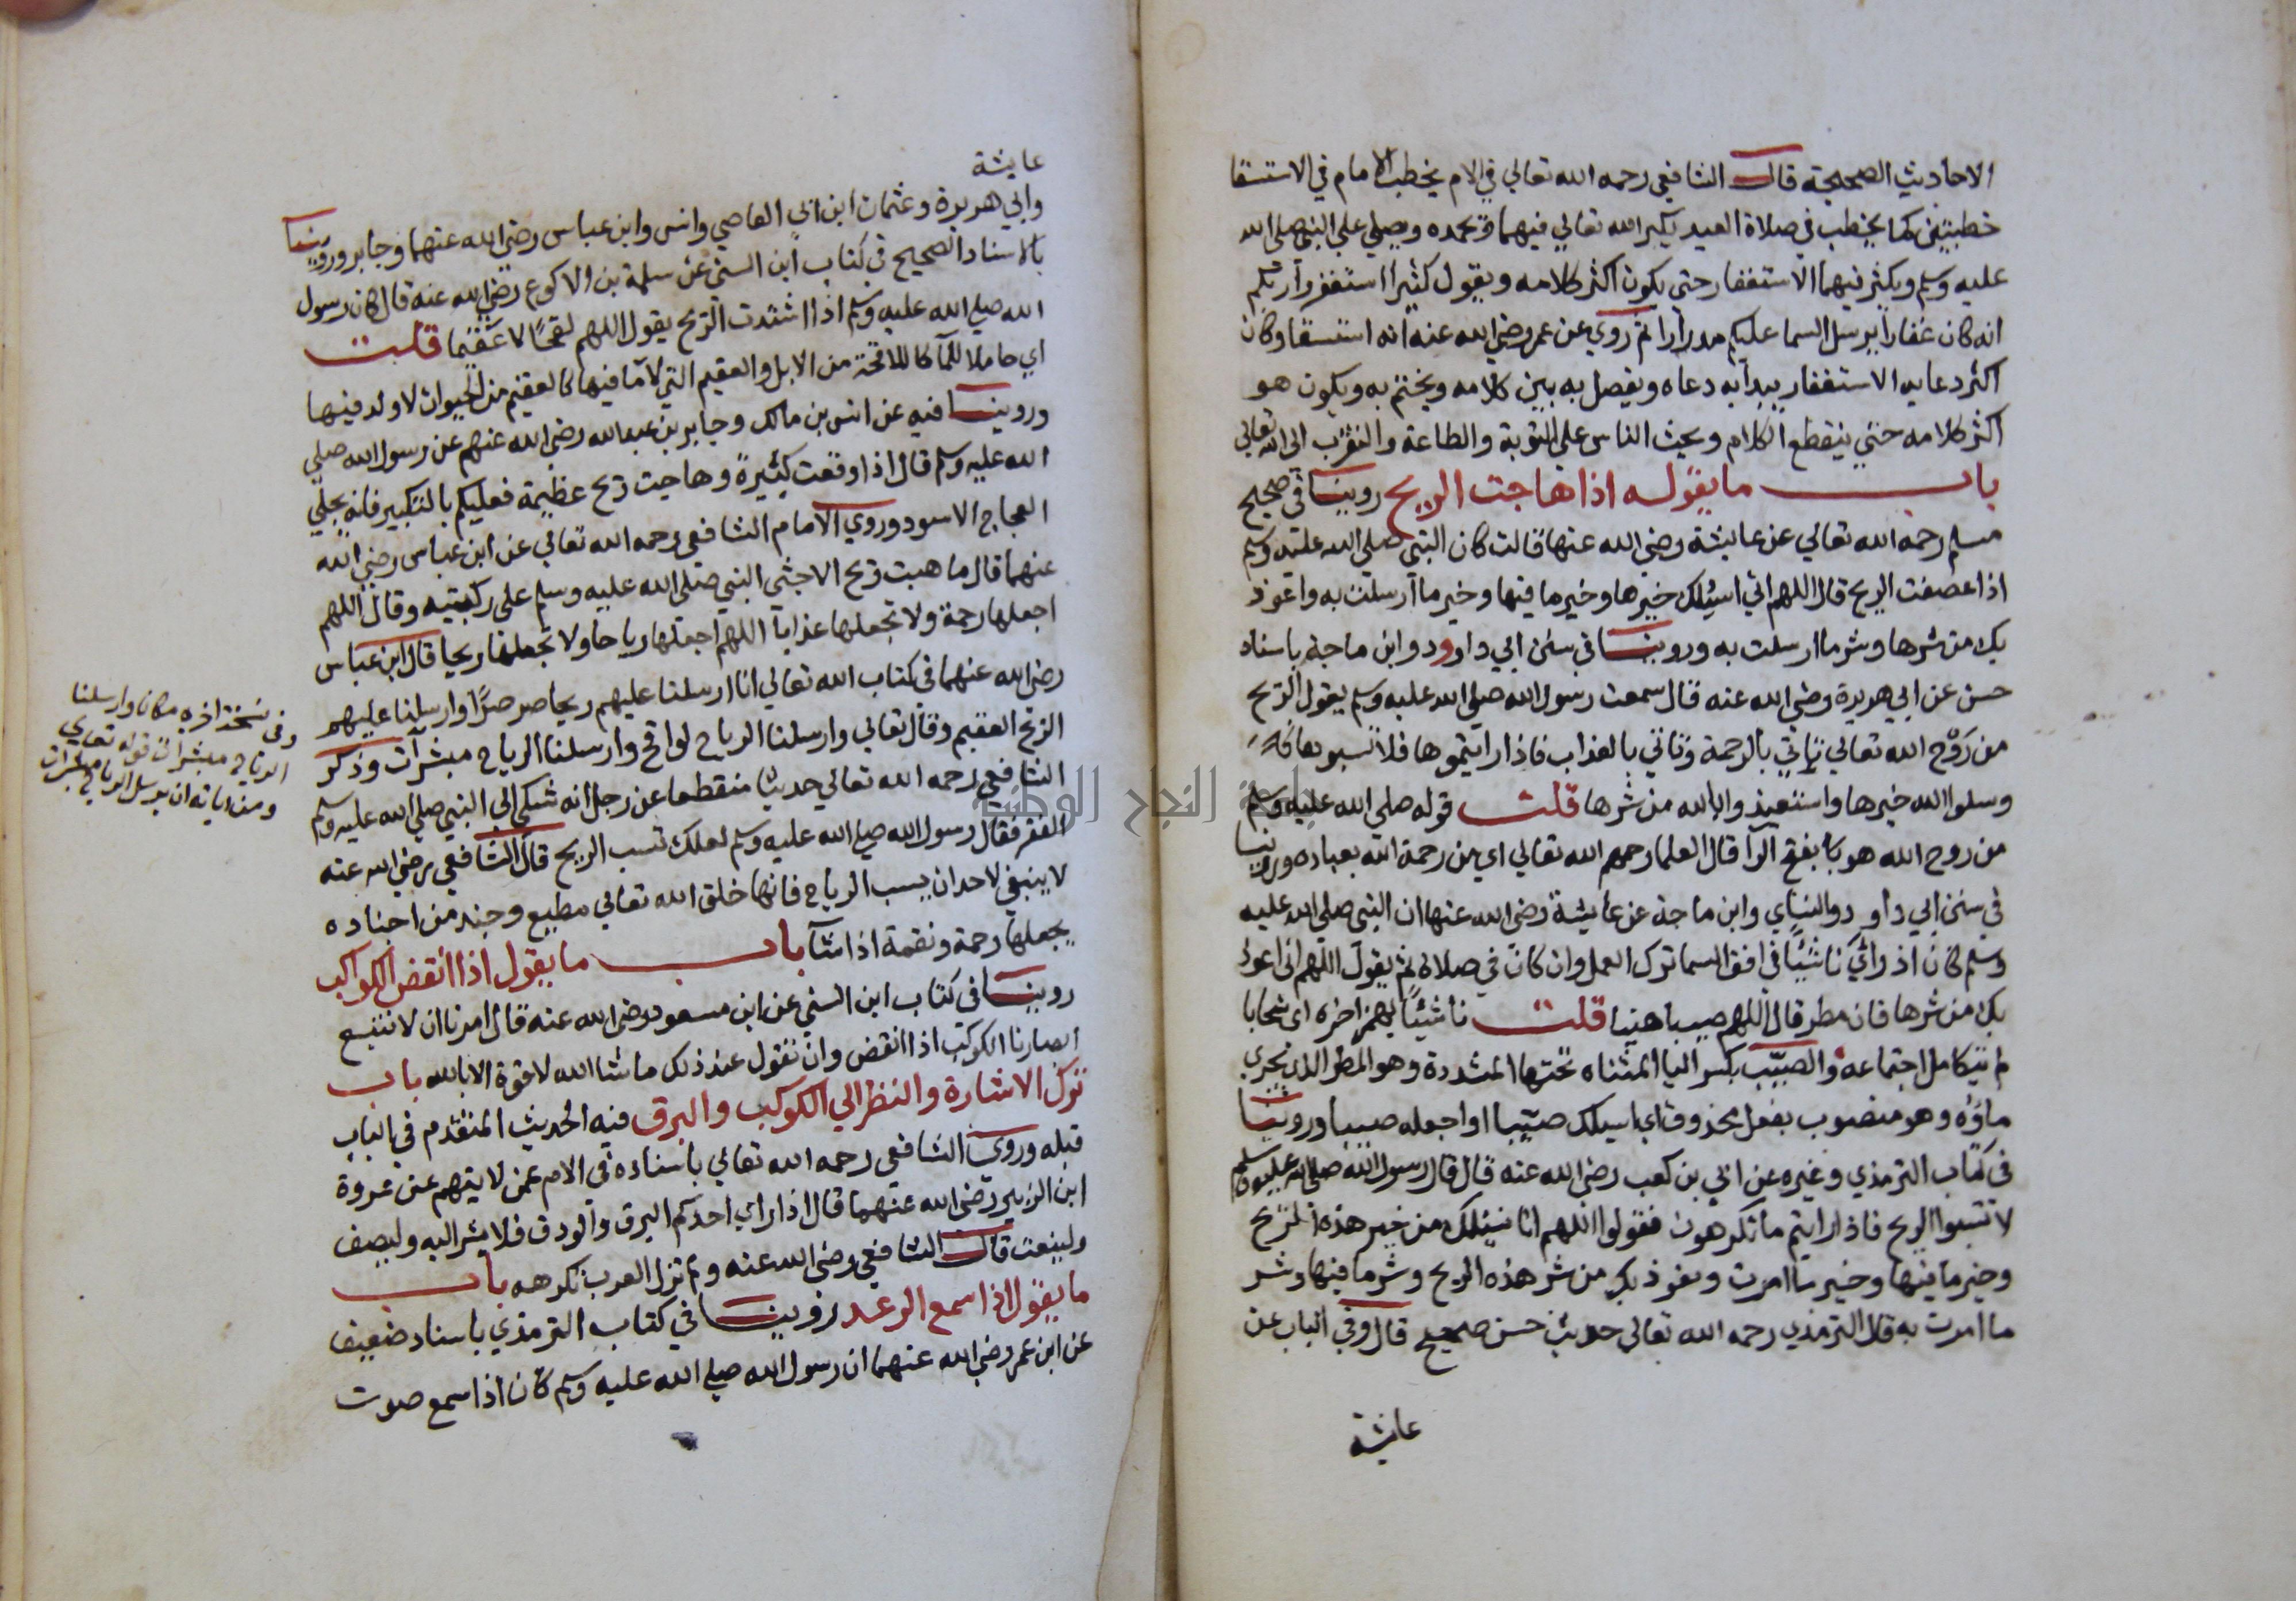 الاحاديث الصحيحة قال الشافعي رحمه الله تعالي في الام يخطب الامام في الاستسقا
خطبتين كما يخطب في صلاة العيد يكبر الله تعالي فيهما ويحمده ويصلي علي النبي صلي الله
عليه وسلم ويكثر فيهما الاستغفار حتي يكون اكثر كلامه ويقول كثيرا استغفروا ربكم
انه كان غفارا يرسل السما عليكم مدرارا ثم روي عن عمر رضي الله عنه انه استسقا وكان
اكثر دعايه الاستغفار يبدا به دعاه ويفصل به بين كلامه ويختم به ويكون هو
اكثر كلامه حتي ينقطع الكلام ويحث الناس علي التوبة والطاعة والتقرب الي الله تعالي
باب ما يقوله اذا هاجت الريح روينا في صحيح
مسلم رحمه الله تعالي عن عايشة رضي الله عنها قالت كان النبي صلي الله عليه وسلم
اذا عصفت الريح قال اللهم اني اسئلك خيرها وخير ما فيها وخير ما ارسلت به واعوذ
بك من شرها وشر ما ارسلت به وروينا في سنن ابي داوود وابن ماجة باسناد
حسن عن ابي هريرة رضي الله عنه قال سمعت رسول الله صلي الله عليه وسلم يقول الريح
من رَوْح الله تعالي تاتي بالرحمة وتاتي بالعذاب فاذا رايتموها فلا تسبوها
وسلوا الله خيرها واستعيذوا بالله من شرها قلت قوله صلي الله عليه وسلم
من روح الله هو بفتح الرآ قال العلما رحمهم الله تعالي اي من رحمة الله بعباده وروينا
في سنن ابي داود والنساي وابن ماجة عن عايشة رضي الله عنها ان النبي صلي الله عليه
وسلم كان اذ راي ناشئًا في افق السما ترك العمل وان كان في صلاة ثم يقول اللهم اني اعوذ
بك من شرها فان مطر قال اللهم صيبا هنيا قلت ناشئًا بهمز اخره اي سحابا
لم يتكامل اجتماعه والصيّب بكسر اليا المثناه تحتها المشددة وهو المطر الذي يجري
ماؤه وهو منصوب بفعل محذوف اي اسيلك صيّبا او اجعله صيبا وروينا
في كتاب الترمذي وغيره عن ابي بن كعب رضي الله عنه قال قال رسول الله صلي الله عليه وسلم
لا تسبوا الريح فاذا رايتم ما تكرهون فقولوا اللهم انا نسئلك من خير هذه الريح
وخير ما فيها وخير ما امرت ونعوذ بك من شر هذه الريح وشر ما فيها وشر
ما امرت به قال الترمذي رحمه الله تعالي حديث حسن صحيح قال وفي الباب عن
عايشة
عايشة
وابي هريرة وعثمان ابن ابي العاصي وانس وابن عباس رضي الله عنهما وجابر وروينا
بالاسناد الصحيح في كتاب ابن السني عن سلمة بن الاكوع رضي الله عنه قال كان رسول
الله صلي الله عليه وسلم اذا اشتدت الريح يقول اللهم لقحًا لا عقيما قلت
اي حاملا للمآ كاللاقحة من الابل والعقيم التي لا مآ فيها كالعقيم من الحيوان لا ولد فيها
وروينا فيه عن انس بن مالك وجابر بن عبد الله رضي الله عنهم عن رسول الله صلي
الله عليه وسلم قال اذا وقعت كبيرةً وهاجت ريح عظيمة فعليكم بالتكبير فانه يجلي
العجاج الاسود وروي الامام الشافعي رحمه الله تعالي عن ابن عباس رضي الله
عنهما قال ما هبت ريح الا جثي النبي صلي الله عليه وسلم علي ركبتيه وقال اللهم
اجعلها رحمة ولا تجعلها عذابا اللهم اجعلها رياحا ولا تجعلها ريحا قال ابن عباس
رضي الله عنهما في كتاب الله تعالي انا ارسلنا عليهم ريحا صرصرًا وارسلنا عليهم
الريح العقيم وقال تعالي وارسلنا الرياح لواقح وارسلنا الرياح مبشرات وذكر
الشافعي رحمه الله تعالي حديثا منقطعا عن رجل انه شكي الي النبي صلي الله عليه وسلم
الفقر فقال رسول الله صلي الله عليه وسلم لعلك تسب الريح قال الشافعي رضي الله عنه
لا ينبغي لاحد ان يسب الرياح فانها خلق الله تعالي مطيع وجند من اجناده
يجعلها رحمة ونقمة اذا شآ باب ما يقول اذا انقض الكواكب
روينا في كتاب ابن السني عن ابن مسعود رضي الله عنه قال امرنا ان لا نتبع
ابصارنا الكوكب اذا انقض وان نقول عند ذلك ما شا الله لا قوة الا بالله باب
ترك الاشارة والنظر الي الكوكب والبرق فيه الحديث المتقدم في الباب
قبله وروي الشافعي رحمه الله تعالي باسناده في الام عمن لا يتهم عن عروة
ابن الزبير رضي الله عنهما قال اذا راي احدكم البرق والودق فلا يشر اليه وليصف
ولينعت قال الشافعي رضي الله عنه ولم تزل العرب تكرهه باب
ما يقول اذا سمع الرعد روينا في كتاب الترمذي باسناد ضعيف
عن ابن عمر رضي الله عنهما ان رسول الله صلي الله عليه وسلم كان اذا سمع صوت
وفي نسخة اخره مكان وارسلنا
الرياح مبشرات قوله تعالي
ومن اياته ان يرسل الرياح مبشرات
جامعة النجاح الوطنية